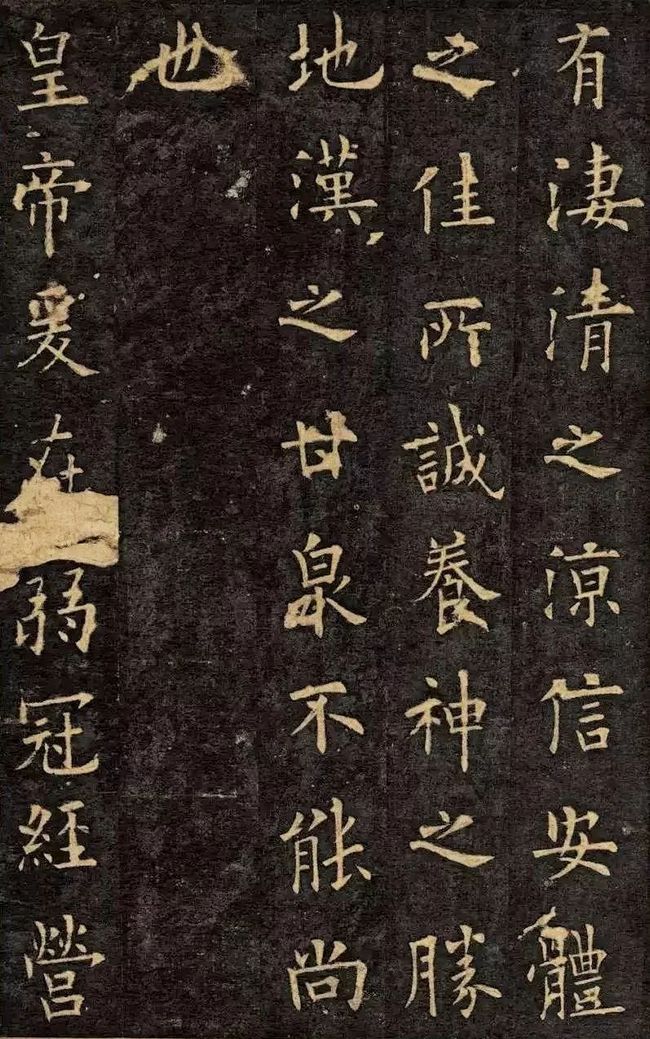 有淒清之涼信安體
之佳所誠養神之勝
地漢之甘泉不能尚
也
皇帝爰在弱冠經營